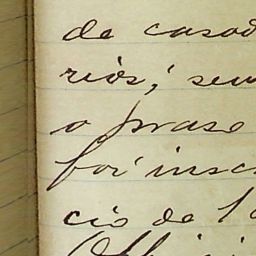 de casad
rios; sem
o praso
foi insc
cio de 1